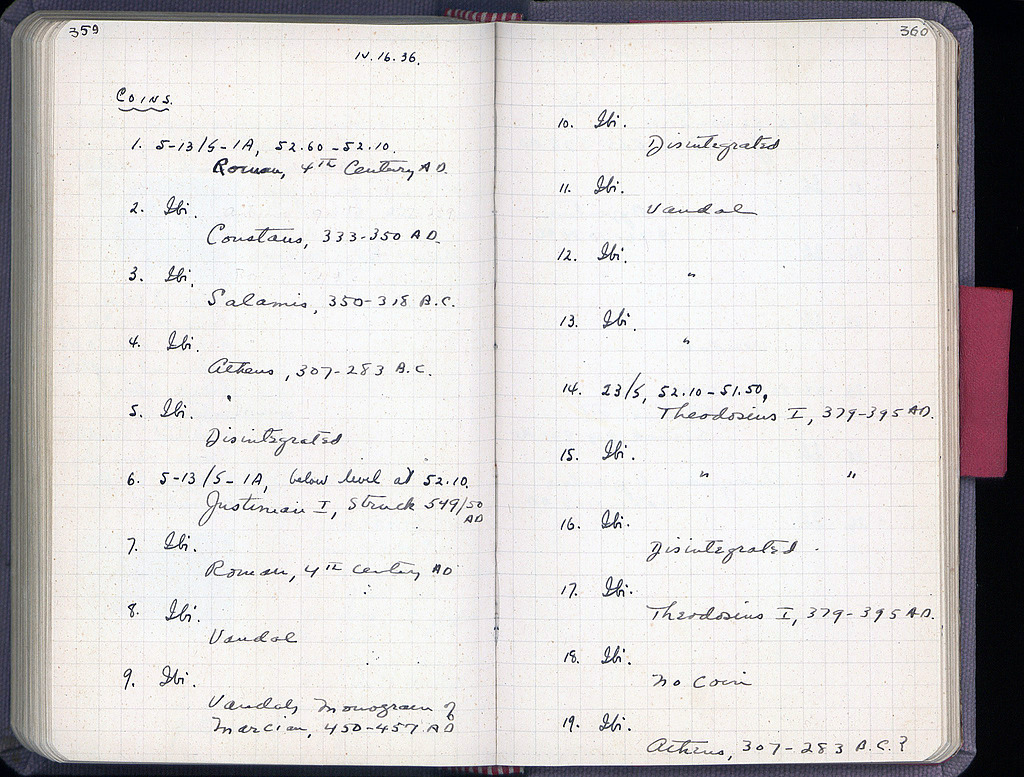 359
IV.16.36.
COINS.
1. S-13/S-1A, 52.60-52.10.
Roman, 4TH Century AD.
2. Ibi.
Constans, 333-350 AD.
3. Ibi.
Salamis, 350-318 B.C.
4. Ibi.
Athens, 307-283 B.C.
5. Ibi.
Disintegrated
6. S-13/S-1A, below level at 52.10.
Justinian I, Struck 549/50
AD
7. Ibi.
Roman, 4TH Century AD
8. Ibi.
Vandal
9. Ibi.
Vandal, Monogram of
Marcian, 450-457 AD
360
10. Ibi.
Disintegrated
11. Ibi.
Vandal
12. Ibi.
"
13. Ibi.
"
14. 23/S, 52.10-51.50,
Theodosius I, 379-395 AD.
15. Ibi.
" "
16. Ibi.
Disintegrated.
17. Ibi.
Theodosius I, 379-395 AD.
18. Ibi.
No Coin
19. Ibi.
Athens, 307-283 B.C.?